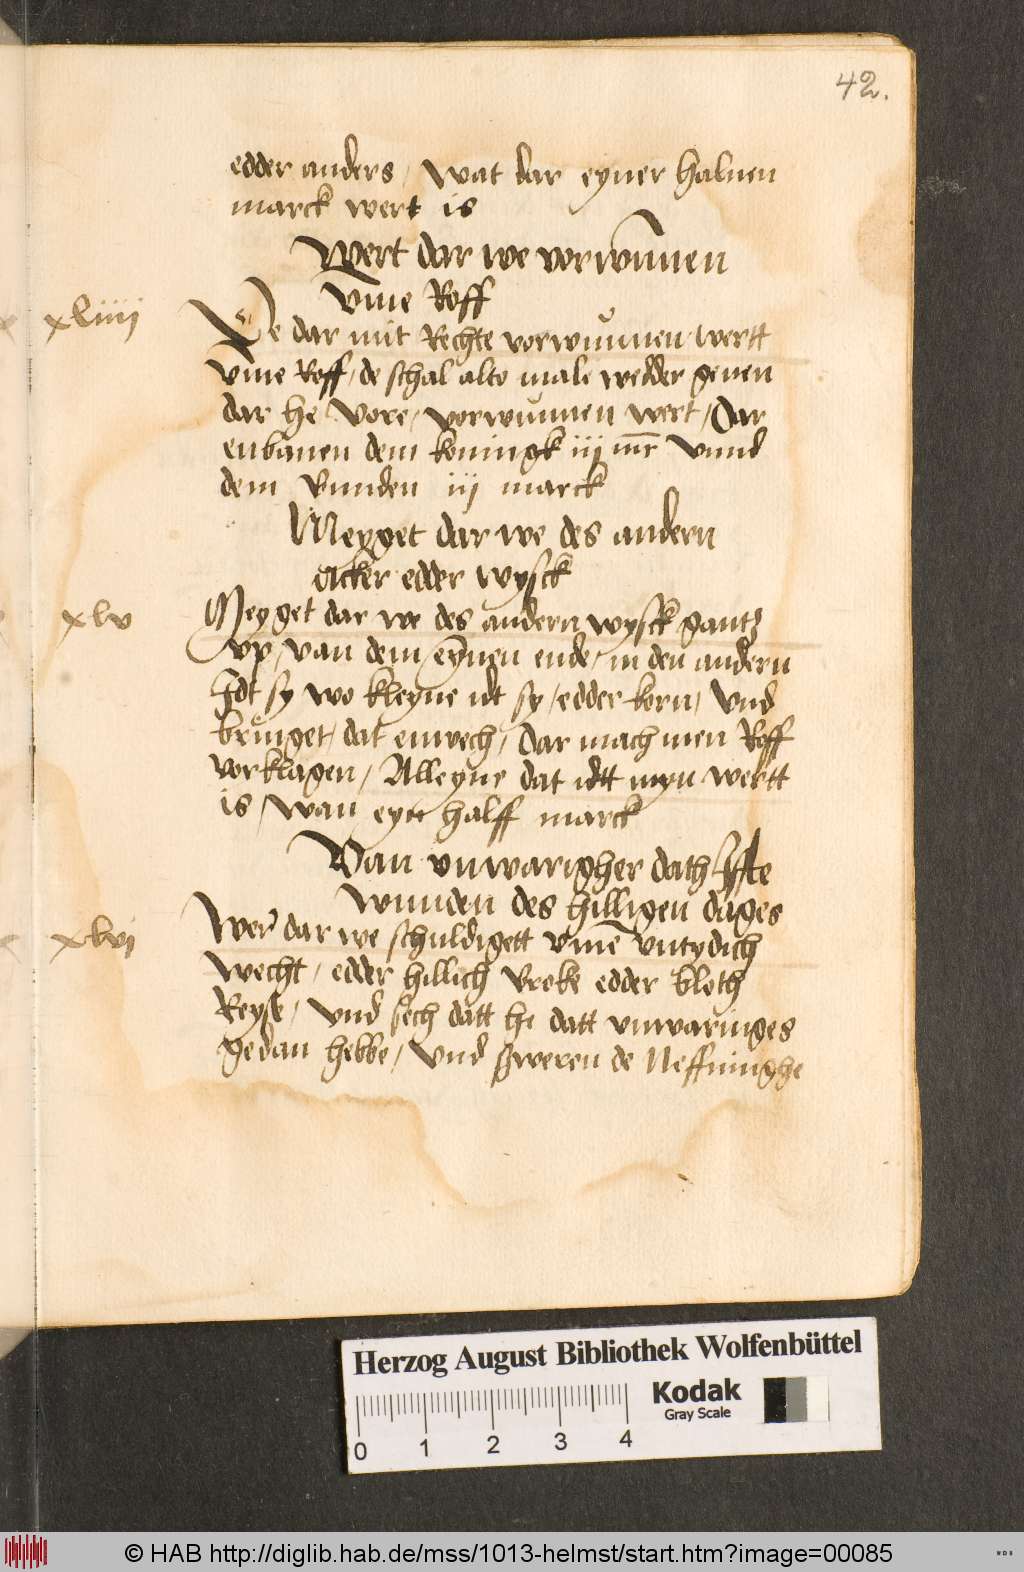 42.
edder anders / wat dar eyner haluen
marck wert is
Wert dar we vorwunnen
vme Roff
xliiij
We dar mit Rechte vorwunnen wertt
vme Roff / de schal alto male wedder geuen
dar he vore / vorwunnen wert / Dar
enbauen dem koningk iij mr vnnd
dem Bunden iij marck
Meyget dar we des andern
Acker edder wysck
xlv
Meyget dar we des andern wysck gantz
vp / van dem / eynen ende / in den andern
Idt sy wo kleyne idt sy / edder korn / vnd
bringet / dat enwech / Dar mach men Roff
vorklagen / Alleyne dat idtt myn wertt
is / wan eyn halff marck
Van vnwarigher dath
wunden des hilligen dages
xlvi
Wer dar we schuldigett vme vntydich
wecht / edder hillich Broke edder kloth
Reyse / vnd sech datt he datt vnwaringes
gedan hebbe / vnd sweren de Neffninghe
Herzog August Bibliothek Wolfenbüttel
Kodak
Gray Scale
0 1 2 3 4
© HAB http://diglib.hab.de/mss/1013-helmst/start.htm?image=00085